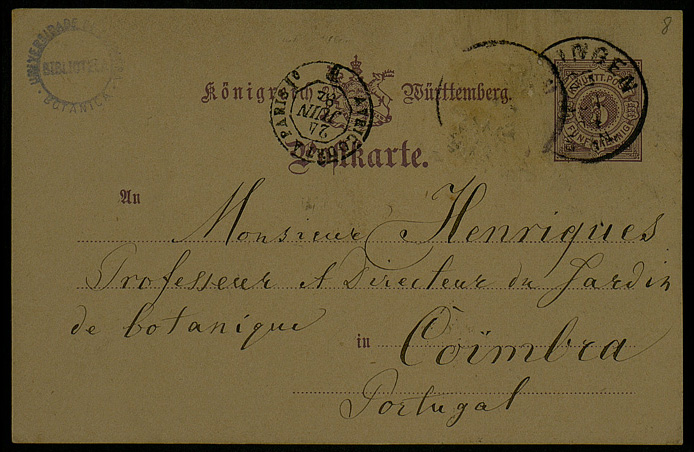 8
UNIVERSIDADE DE
BIBLIOTECA
BOTANICA
Königreich Württemberg.
Postkarte.
PARIS
24
JUIN
INGEN
An Monsieur Henriques
Professeur et Directeur du Jardin
de botanique
in Coïmbra
Portugal